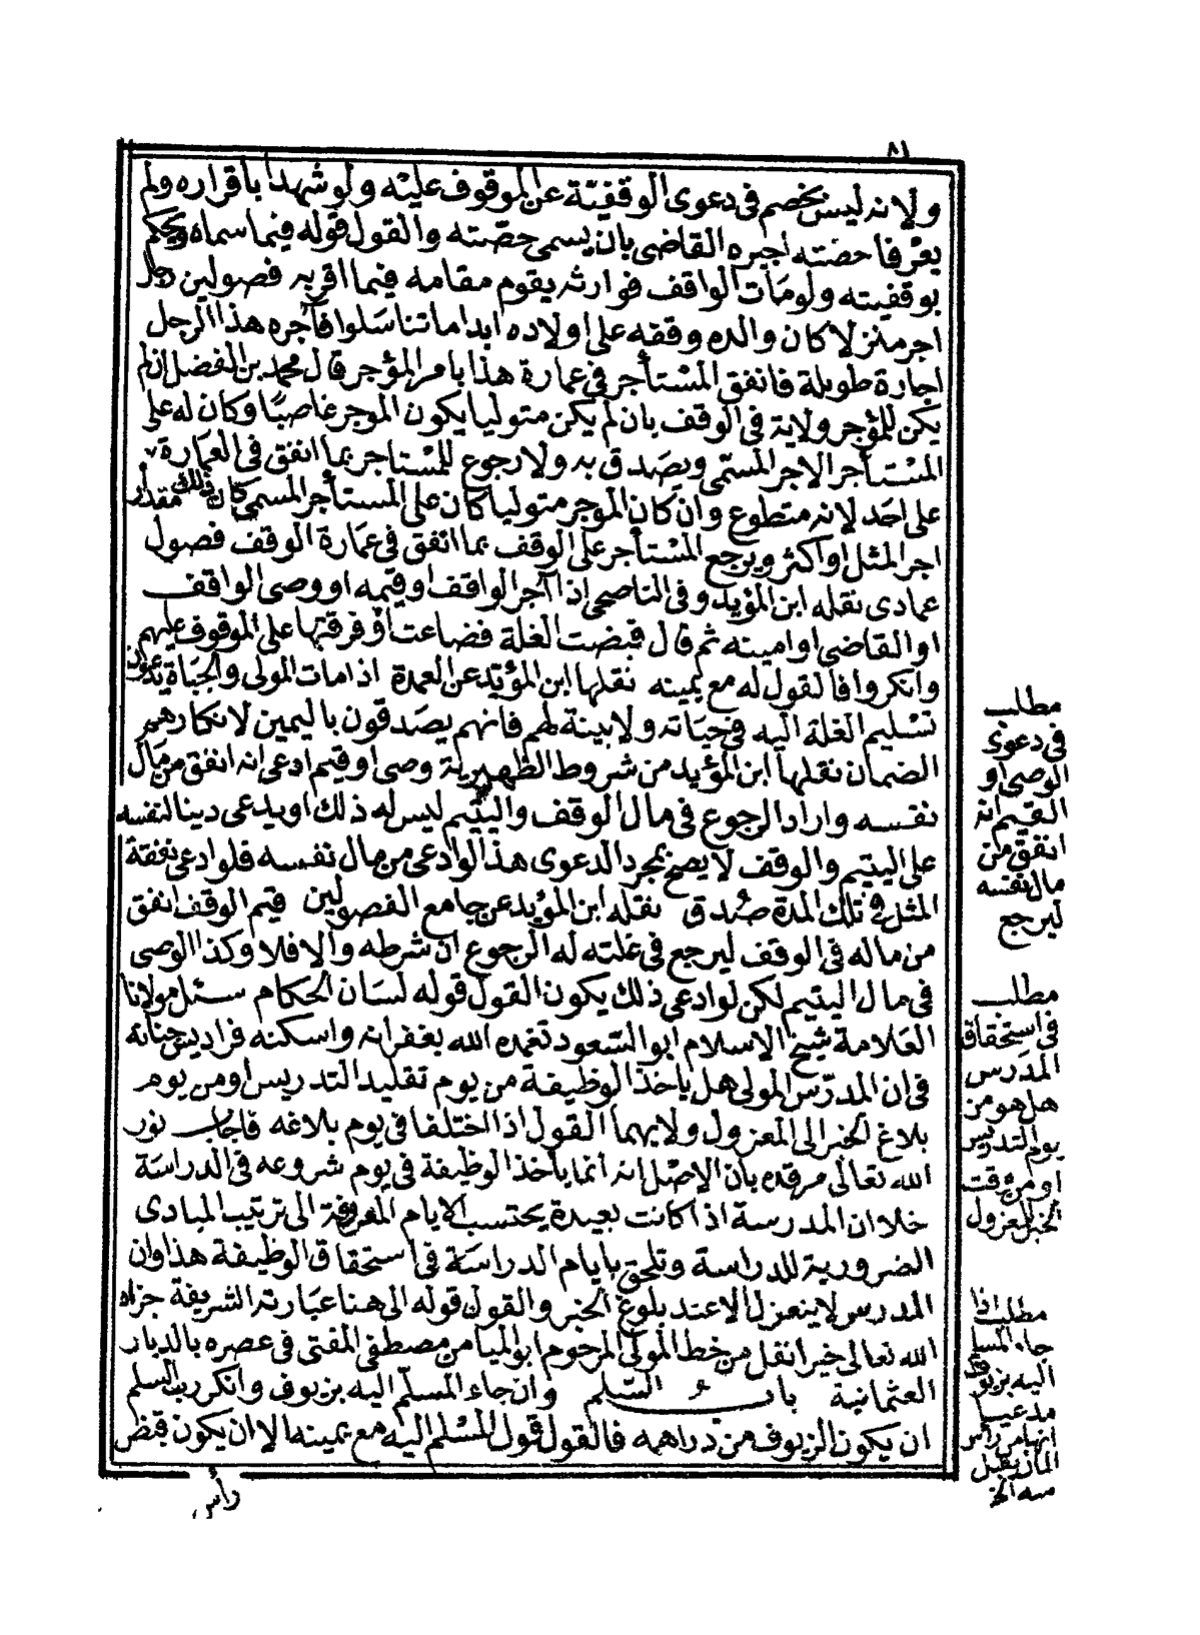 ٨١
ولانه ليس بخصم فى دعوى الوقفية عن الموقوف عليه ولو شهدا باقراره ولم
يعرفا حصته اجبره القاضى بان يسمى حصته والقول قوله فيما سماه ويحكم
بوقفيته ولو مات الواقف فوارثه يقوم مقامه فيما اقر به فصولين رجل
اجر منزلا كان والده وقفه على اولاده ابدا ما تناسلوا فآجره هذا الرجل
اجارة طويلة فانفق المستأجر فى عمارة هذا بامر المؤجر قال محمد بن الفضل ان لم
يكن للمؤجر ولاية فى الوقف بان لم يكن متوليا يكون الموجر غاصبا وكان له على
المستأجر الاجر المسمى ويصدق به ولا رجوع للمستاجر بما انفق فى العمارة
على احد لانه متطوع وان كان الموجر متوليا كان على المستأجر المسمى كان ذلك مقدار
اجر المثل او اكثر ويرجع المستأجر على الوقف بما انفق فى عمارة الوقف فصول
عمادى نقله ابن المؤيد وفى الناصحى اذا آجر الواقف او قيمه او وصى الواقف
او القاضى او امينه ثم قال قبضت الغلة فضاعت او فرقتها على الموقوف عليهم
وانكروا فالقول له مع يمينه نقلها ابن المؤيد عن العمدة اذا مات المولى والجباة يدعون
تسليم الغلة اليه فى حياته ولا بينة لهم فانهم يصدقون باليمين لانكارهم
الضمان نقلها ابن المؤيد من شروط الظهيرية وصى او قيم ادعى انه انفق من مال
نفسه واراد الرجوع فى مال الوقف واليتيم ليس له ذلك او يدعى دينا لنفسه
على اليتيم والوقف لا يصح بمجرد الدعوى هذا لو ادعى من مال نفسه فلو ادعى نفقة
المثل فى تلك المدة صدق نقله ابن المؤيد عن جامع الفصولين قيم الوقف انفق
من ماله فى الوقف ليرجع فى غلته له الرجوع ان شرطه والا فلا وكذا الوصى
فى مال اليتيم لكن لو ادعى ذلك يكون القول قوله لسان الحكام سئل مولانا
العلامة شيخ الاسلام ابو السعود تغمده الله بغفرانه واسكنه فراديس جنانه
فى ان المدرس المولى هل يأخذ الوظيفة من يوم تقليد التدريس او من يوم
بلاغ الخبر الى المعزول ولايهما القول اذا اختلفا فى يوم بلاغه فاجاب نور
الله تعالى مرقده بان الاصل انه انما يأخذ الوظيفة فى يوم شروعه فى الدراسة
خلا ان المدرسة اذا كانت بعيدة يحتسب الايام المعروفة الى ترتيب المبادى
الضرورية للدراسة وتلحق بايام الدراسة فى استحقاق الوظيفة هذا وان
المدرس لا ينعزل الا عند بلوغ الخبر والقول قوله الى هنا عبارته الشريفة جزاه
الله تعالى خيرا نقل من خط المولى المرحوم ابو الميامن مصطفى المفتى فى عصره بالديار
العثمانية باب السلم وان جاء المسلم اليه بزيوف وانكر رب السلم
ان يكون الزيوف من دراهمه فالقول قول المسلم اليه مع يمينه الا ان يكون قبض
رأس
مطلب
فى دعوى
الوصى او
القيم انه
انفق من
مال نفسه
ليرجع
مطلب
فى استحقاق
المدرس
هل هو من
يوم التدريس
او من وقت
الخبر للمعزول
مطلب اذا
جاء المسلم
اليه بزيوف
مدعيا
انها من رأس
المال يقبل
منه الخ